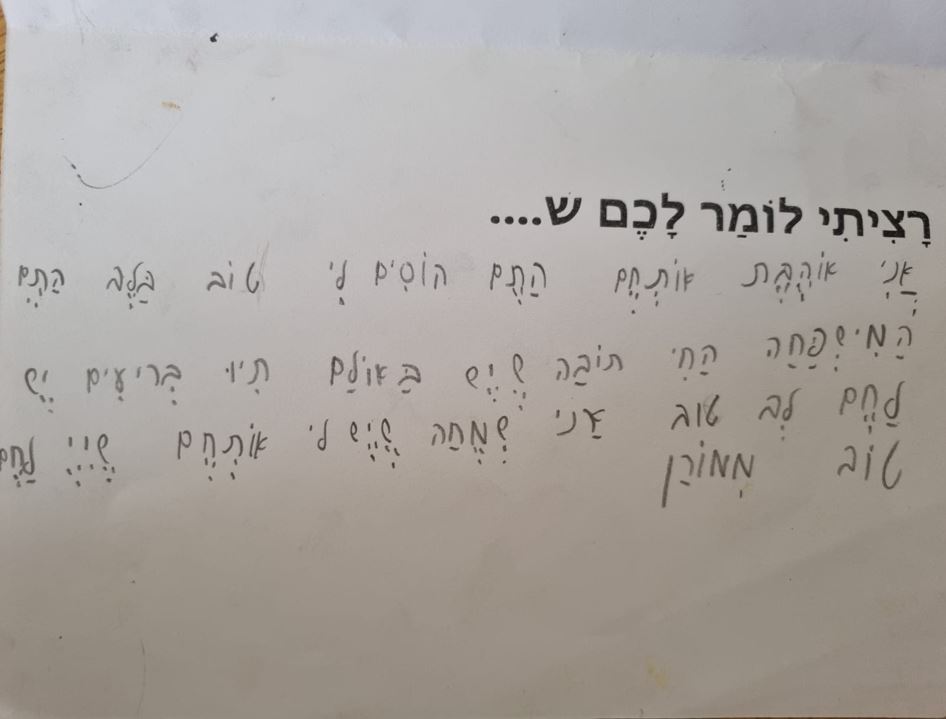 רָצִיתִי לוֹמַר לָכֶם ש....
אֲנִי אוֹהֶבֶת אוֹתְחֶם הַתֶם הוֹסִים לִי טוֹב בַּלֶב הַתֶם
הַמִישְפַּחַה הַחִי תוֹבַה שֶיֶש בַּאוֹלַם תִיוּ בְּרִיעִים יֶש
לַחֶם לֶב טוֹב אֲנִי שְמֶחַה שֶיֶש לִי אוֹתְחֶם שֶיִיֶי לַחֶם
טוֹב מְמוֹרַן